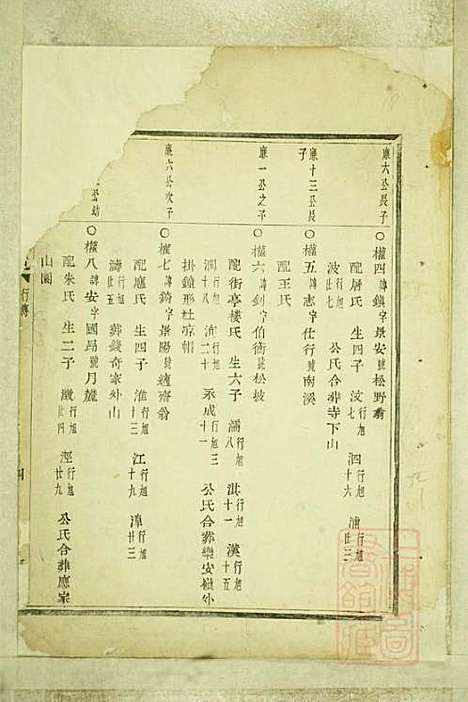 廉六公長子
○權四諱鎮字景安號松野翁
配屠氏 生四子 汶行旭七 泗行旭十六 浦行旭廿三
波行旭廿七 公氏合葬寺下山
廉十三公長子
○權五諱志字仕行號南溪
配王氏
廉一公之子
○權六諱釗字伯衡號松坡
配街亭樓氏 生六子 灝行旭八 淇行旭十一 漢行旭十五
行旭十八 行旭二十 承成行旭三十一 公氏合葬樂安嶺外
掛鐘形杜凉輔
廉六公次子
○權七諱錡字景陽號遯齋翁
配應氏 生四子 淮行旭十三 江行旭十九 漳行旭廿三
濤行旭廿五 葬錢奇家外山
公幼
○權八諱安字國昂號月麓
配朱氏 生二子 行旭廿四 涇行旭廿九 公氏合葬應家
山園
行傳